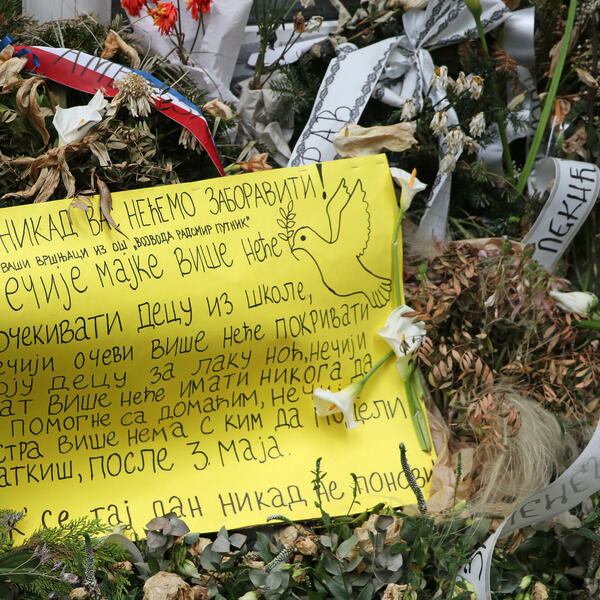 НИКАД ВАС НЕЋЕМО ЗАБОРАВИТИ!
ВАШИ ВРШЊАЦИ ИЗ ОШ „ВОЈВОДА РАДОМИР ПУТНИК"
ЕЧИЈЕ МАЈКЕ ВИШЕ НЕЋЕ
ОЧЕКИВАТИ ДЕЦУ ИЗ ШКОЛЕ,
ЕЧИЈИ ОЧЕВИ ВИШЕ НЕЋЕ ПОКРИВАТИ
ОЈУ ДЕЦУ ЗА ЛАКУ НОЋ, НЕЧИЈИ
АТ ВИШЕ НЕЋЕ ИМАТИ НИКОГА ДА
ПОМОГНЕ СА ДОМАЋИМ, НЕЧИ
СТРА ВИШЕ НЕМА С КИМ ДА ПОДЕЛИ
АТКИШ, ПОСЛЕ 3. МАЈА.
СЕ ТАЈ ДАН НИКАД НЕ ПОНОВИ
ПЕКИЋ